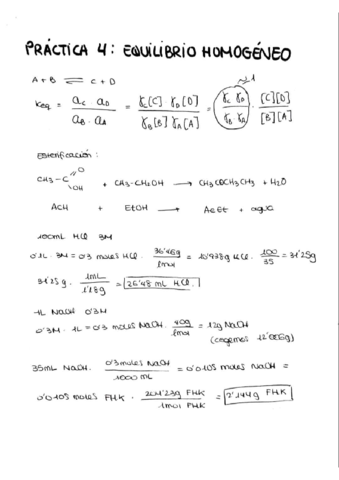 PRÁCTICA 4: EQUILIBRIO HOMOGÉNEO
A + B ⇌ C + D
Keq = aC aD / aB · aA = γC[C] γD[D] / γB[B] γA[A] = (γC γD / γB γA) [C][D] / [B][A] ~1
Esterificación:
CH3-C=O OH + CH3-CH2OH → CH3COCH2CH3 + H2O
ACH + EtOH → AcEt + agua
100mL HCl 3M
0'1L · 3M = 0'3 moles HCl · 36'46g / 1mol = 10'938g HCl · 100 / 35 = 31'25g
31'25g · 1mL / 1'18g = 26'48 mL HCl.
1L NaOH 0'3M
0'3M · 1L = 0'3 moles NaOH · 40g / 1mol = 12g NaOH
(cogemos 12'006g)
35mL NaOH · 0'3 moles NaOH / 1000 mL = 0'0105 moles NaOH =
0'0105 moles FHK · 204'23g FHK / 1mol FHK = 2'144g FHK